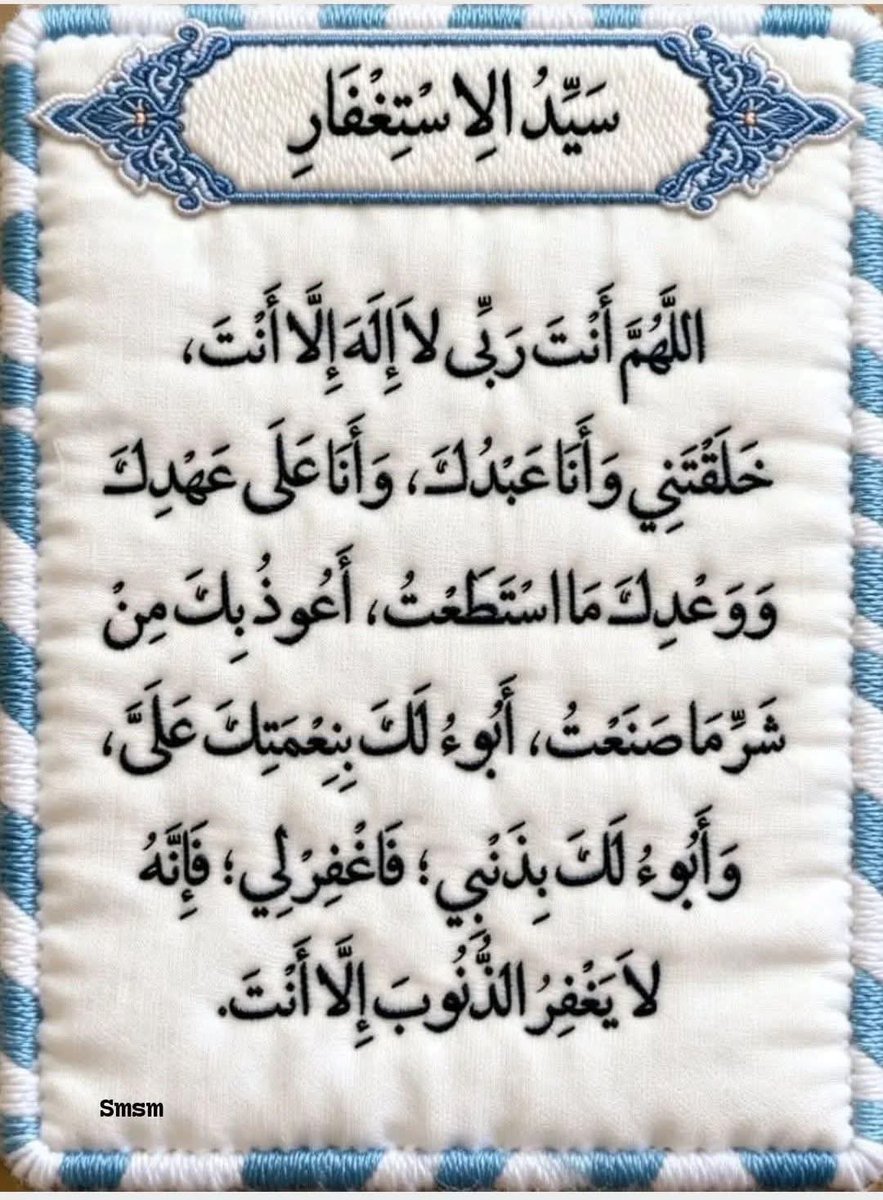 سَيِّدُ الِاسْتِغْفَارِ
اللَّهُمَّ أَنْتَ رَبِّى لاَ إِلَهَ إِلَّا أَنْتَ،
خَلَقْتَنِي وَأَنَا عَبْدُكَ، وَأَنَا عَلَى عَهْدِكَ
وَوَعْدِكَ مَا اسْتَطَعْتُ، أَعُوذُ بِكَ مِنْ
شَرِّ مَا صَنَعْتُ، أَبُوءُ لَكَ بِنِعْمَتِكَ عَلَىَّ،
وَأَبُوءُ لَكَ بِذَنْبِي؛ فَاغْفِرْ لِي؛ فَإِنَّهُ
لاَ يَغْفِرُ الذُّنُوبَ إِلَّا أَنْتَ.
Smsm